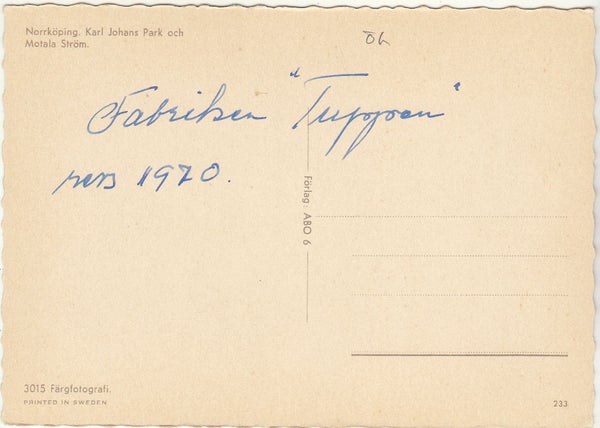 Norrköping. Karl Johans Park och
Motala Ström.
Öh
Fabriken "Tuppen"
revs 1970.
Förlag: ABO 6
3015 Färgfotografi.
PRINTED IN SWEDEN
233